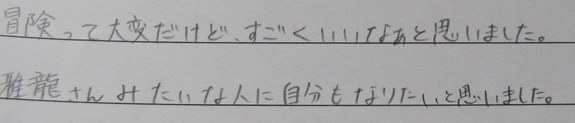 冒険って大変だけど、すごくいいなぁと思いました。
雅龍さんみたいな人に自分もなりたいと思いました。